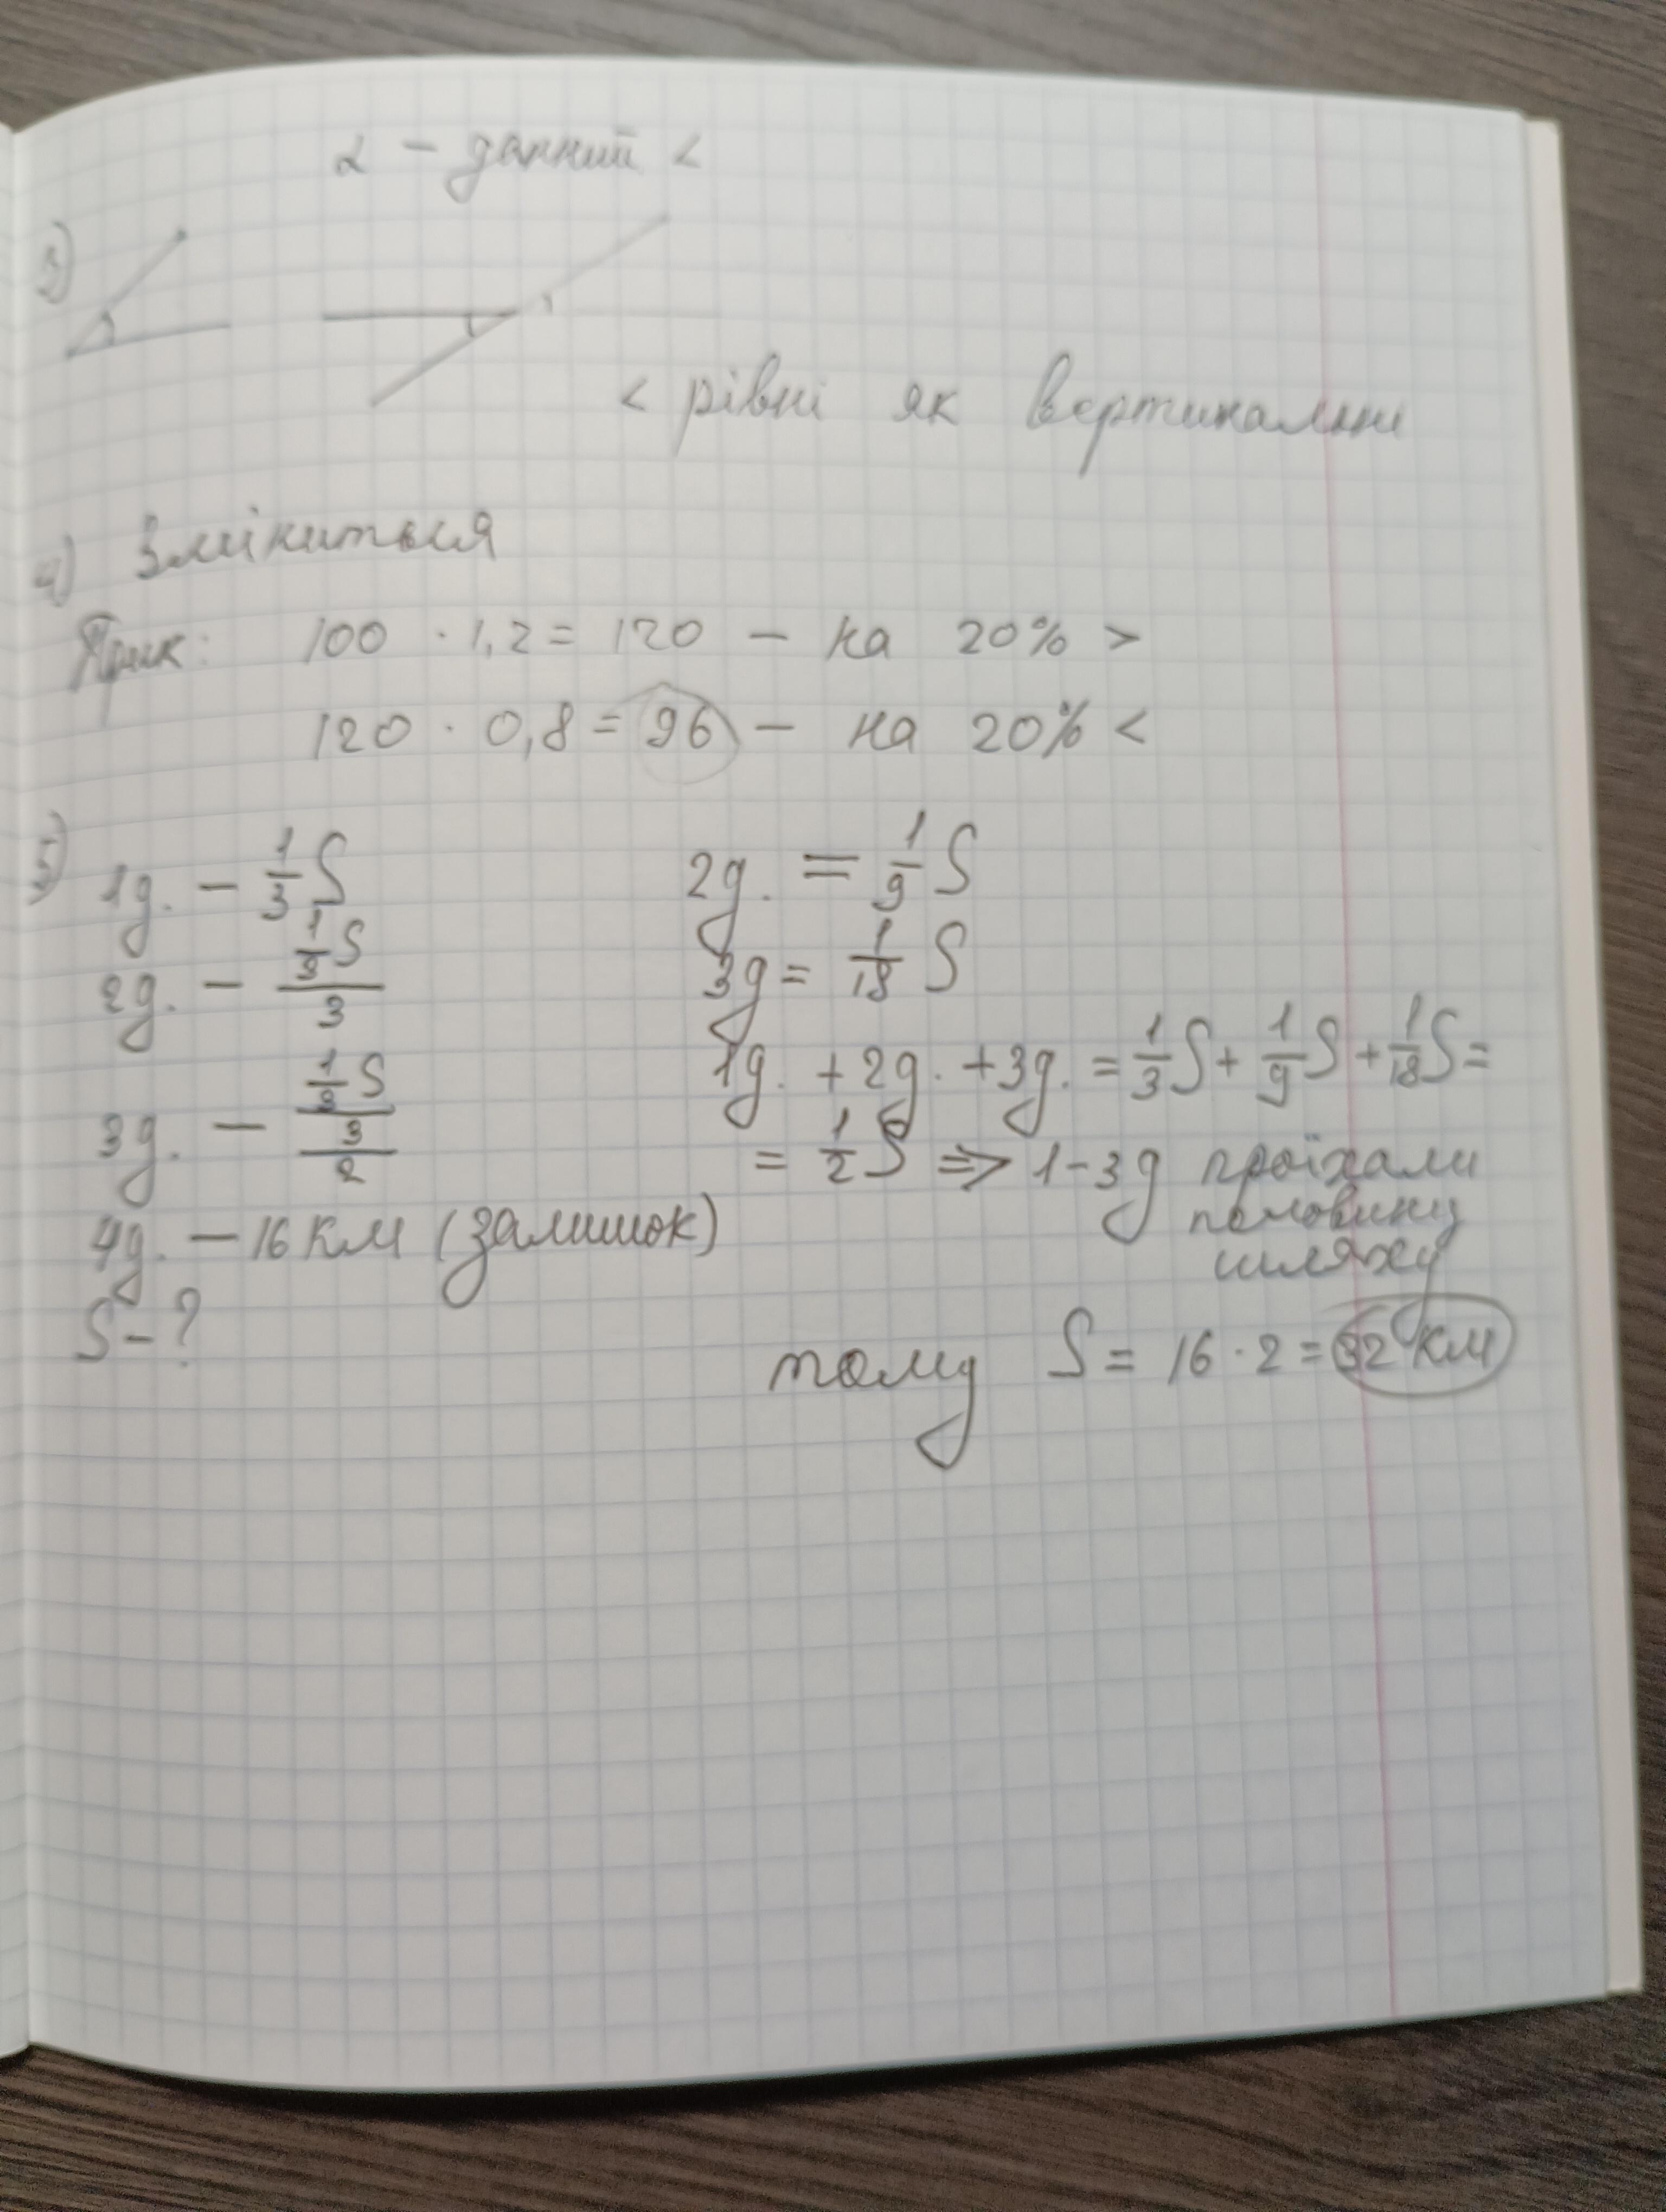 α - данний <
3)
< рівні як вертикальні
4) Зміниться
Прик: 100 · 1,2 = 120 - на 20% >
120 · 0,8 = 96 - на 20% <
5)
1д. - 1/3 S
2д. - 1/3 S / 3
3д. - 1/3 S / 3 / 2
4д. - 16 км (залишок)
S - ?
2д. = 1/9 S
3д = 1/18 S
1д. + 2д. + 3д. = 1/3 S + 1/9 S + 1/18 S =
= 1/2 S => 1-3д проїхали
половину
шляху
тому S = 16 · 2 = 32 км